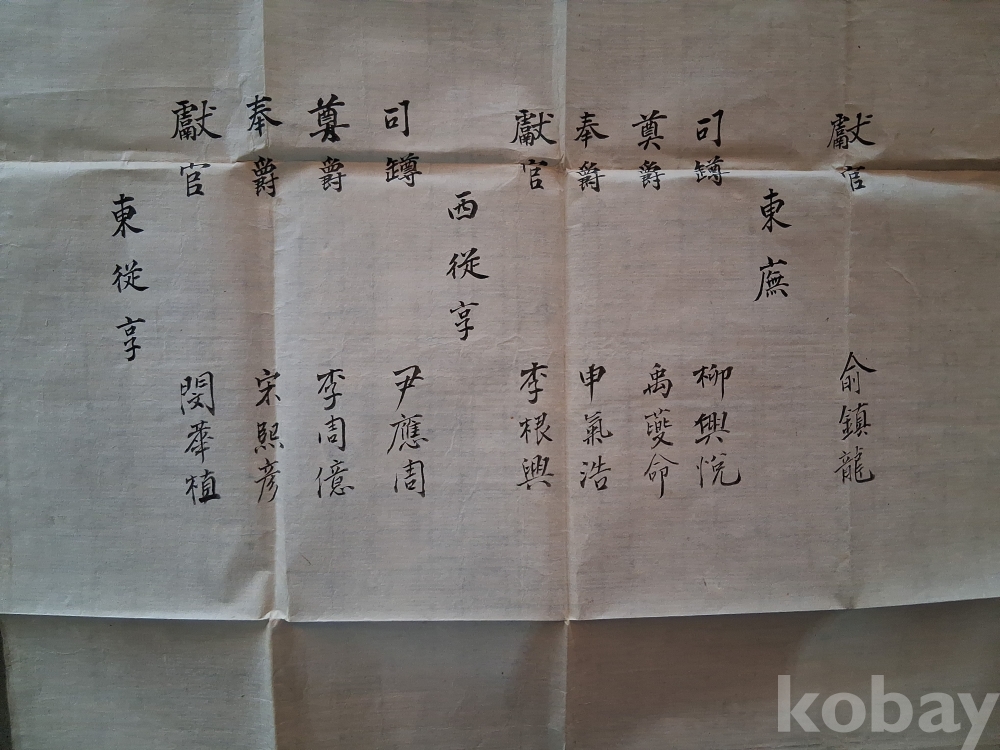 獻官 俞鎮龍
東廡
司罇 柳興悅
奠爵 禹夔命
奉爵 申氣浩
獻官 李根興
西從享
司罇 尹應周
奠爵 李周億
奉爵 宋熙彦
獻官 閔華植
東從享
kobay